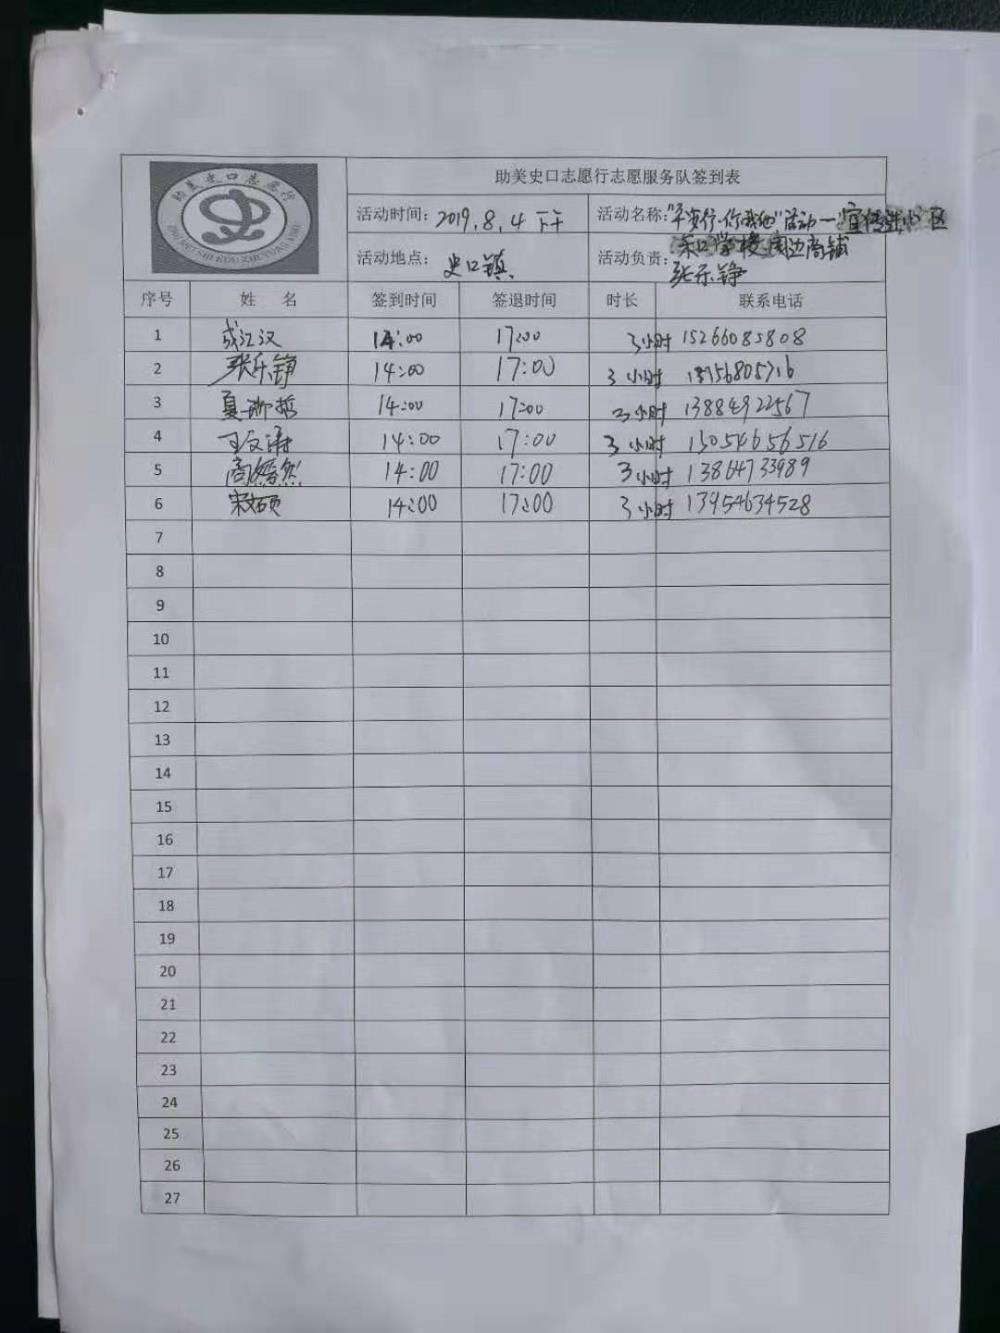 助美史口志愿行
助美史口志愿行志愿服务队签到表
活动时间: 2019.8.4 下午 活动名称: "平安行·你我他"活动—宣传进小区
学校周边商铺
活动地点: 史口镇 活动负责: 张乐铮
序号 姓 名 签到时间 签退时间 时长 联系电话
1 成江汉 14:00 17:00 3小时 15266085808
2 张乐铮 14:00 17:00 3小时
3 夏 14:00 17:00 3小时 13884922567
4 王文涛 14:00 17:00 3小时 13054656516
5 商 然 14:00 17:00 3小时 13864733989
6 宋硕 14:00 17:00 3小时 13954634528
7
8
9
10
11
12
13
14
15
16
17
18
19
20
21
22
23
24
25
26
27